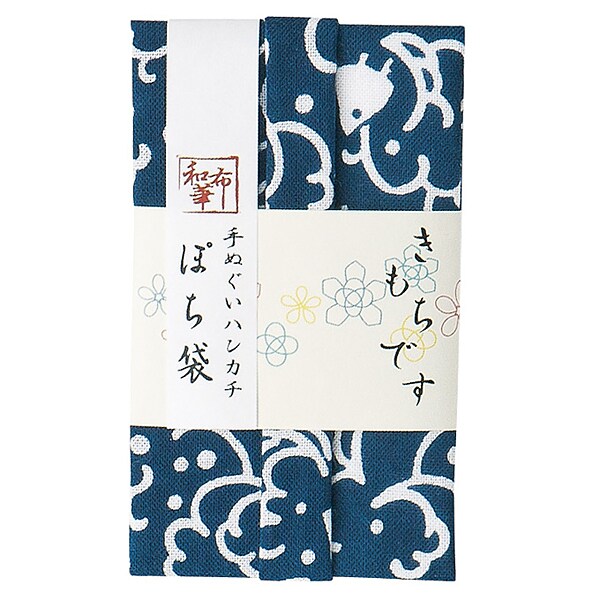 きもちです
和布華
手ぬぐいハンカチ
ぽち袋